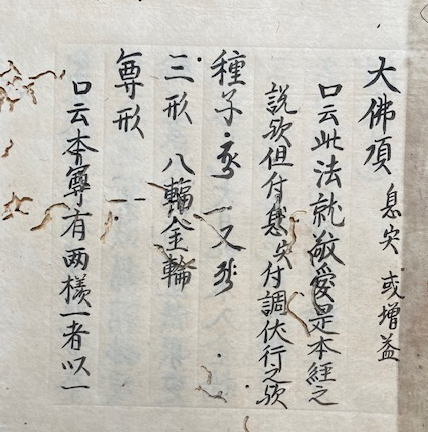 大佛頂 息災 或増益
口云此法就敬愛是本経之
説欤但付息災付調伏行之欤
種子 一又
三形 八輻金輪
尊形
口云本尊有两様一者以一